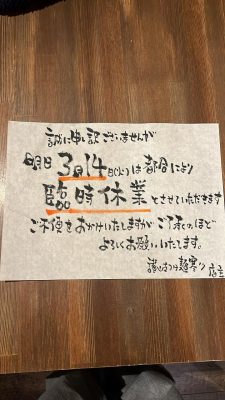 誠に申し訳ございませんが
明日3月14日(火)は都合により
臨時休業とさせていただきます
ご不便をおかけいたしますがご了承のほど
よろしくお願いいたします。
店主